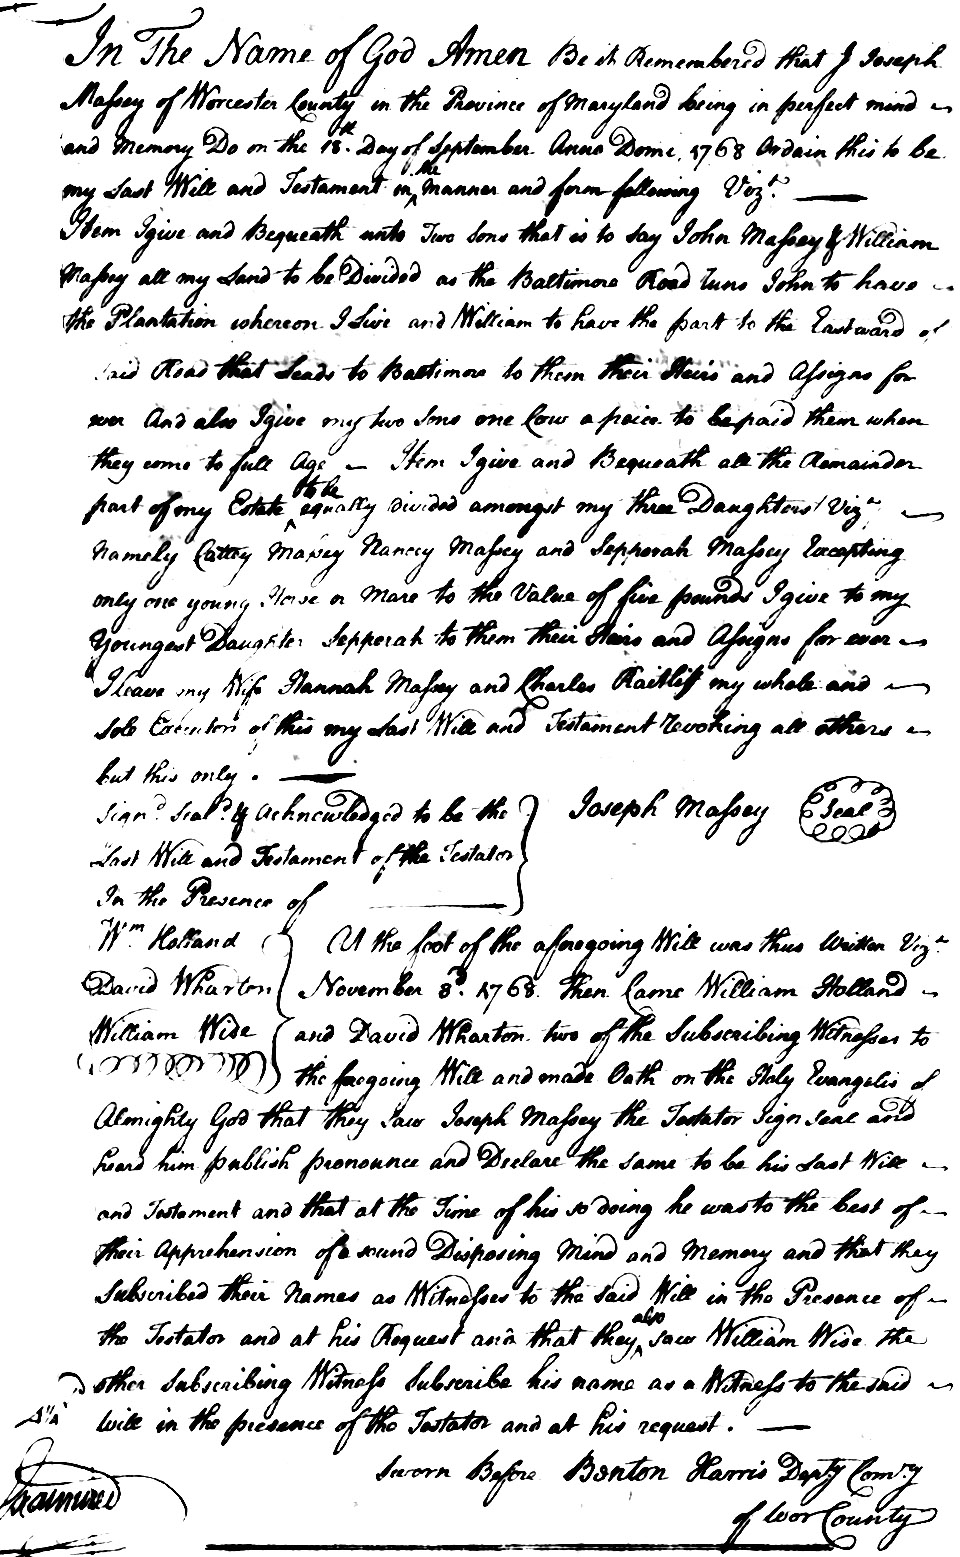 In The Name of God Amen Be it Remembered that I Joseph
Massey of Worcester County in the Province of Maryland being in perfect mind
and Memory Do on the 18.th Day of September Anna Domi. 1768 Ordain this to be
my Last Will and Testament in the manner and form following Vizt.
Item I give and Bequeath unto Two Sons that is to say John Massey & William
Massey all my Land to be Divided as the Baltimore Road runs John to have
the Plantation whereon I Live and William to have the part to the Eastward of
said Road that Leads to Baltimore to them their Heirs and Assigns for
ever And also I give my two Sons one Cow a peice to be paid them when
they come to full Age Item I give and Bequeath all the Remainder
part of my Estate to be equally divided amongst my three Daughters Vizt
namely Cattey Massey Nancey Massey and Sepporah Massey Excepting
only one young Horse or Mare to the Value of five pounds I give to my
Youngest Daughter Sepperah to them their Heirs and Assigns for ever
I leave my Wife Hannah Massey and Charles Raitliff my whole and
sole Executors of this my Last Will and Testament revoking all others
but this only.
Signd. Seald. & Acknowledged to be the
Last Will and Testament of the Testator
In the Presence of
Joseph Massey Seal
Wm. Holland
David Wharton
William Wise
At the foot of the aforegoing Will was thus Written Vizt.
November 3d. 1768. then Came William Holland
and David Wharton two of the Subscribing Witnesses to
the foregoing Will and made Oath on the Holy Evangelis of
Almighty God that they saw Joseph Massey the Testator Sign seal and
heard him publish pronounce and Declare the same to be his Last Will
and Testament and that at the Time of his so doing he was to the best of
their Apprehension of a sound Disposing Mind and Memory and that they
Subscribed their Names as Witnesses to the said Will in the Presence of
the Testator and at his Request and that they also saw William Wise the
other Subscribing Witness Subscribe his name as a Witness to the said
Will in the presence of the Testator and at his request.
Sworn Before Benton Harris Depty Comry
of Wor County
Examined